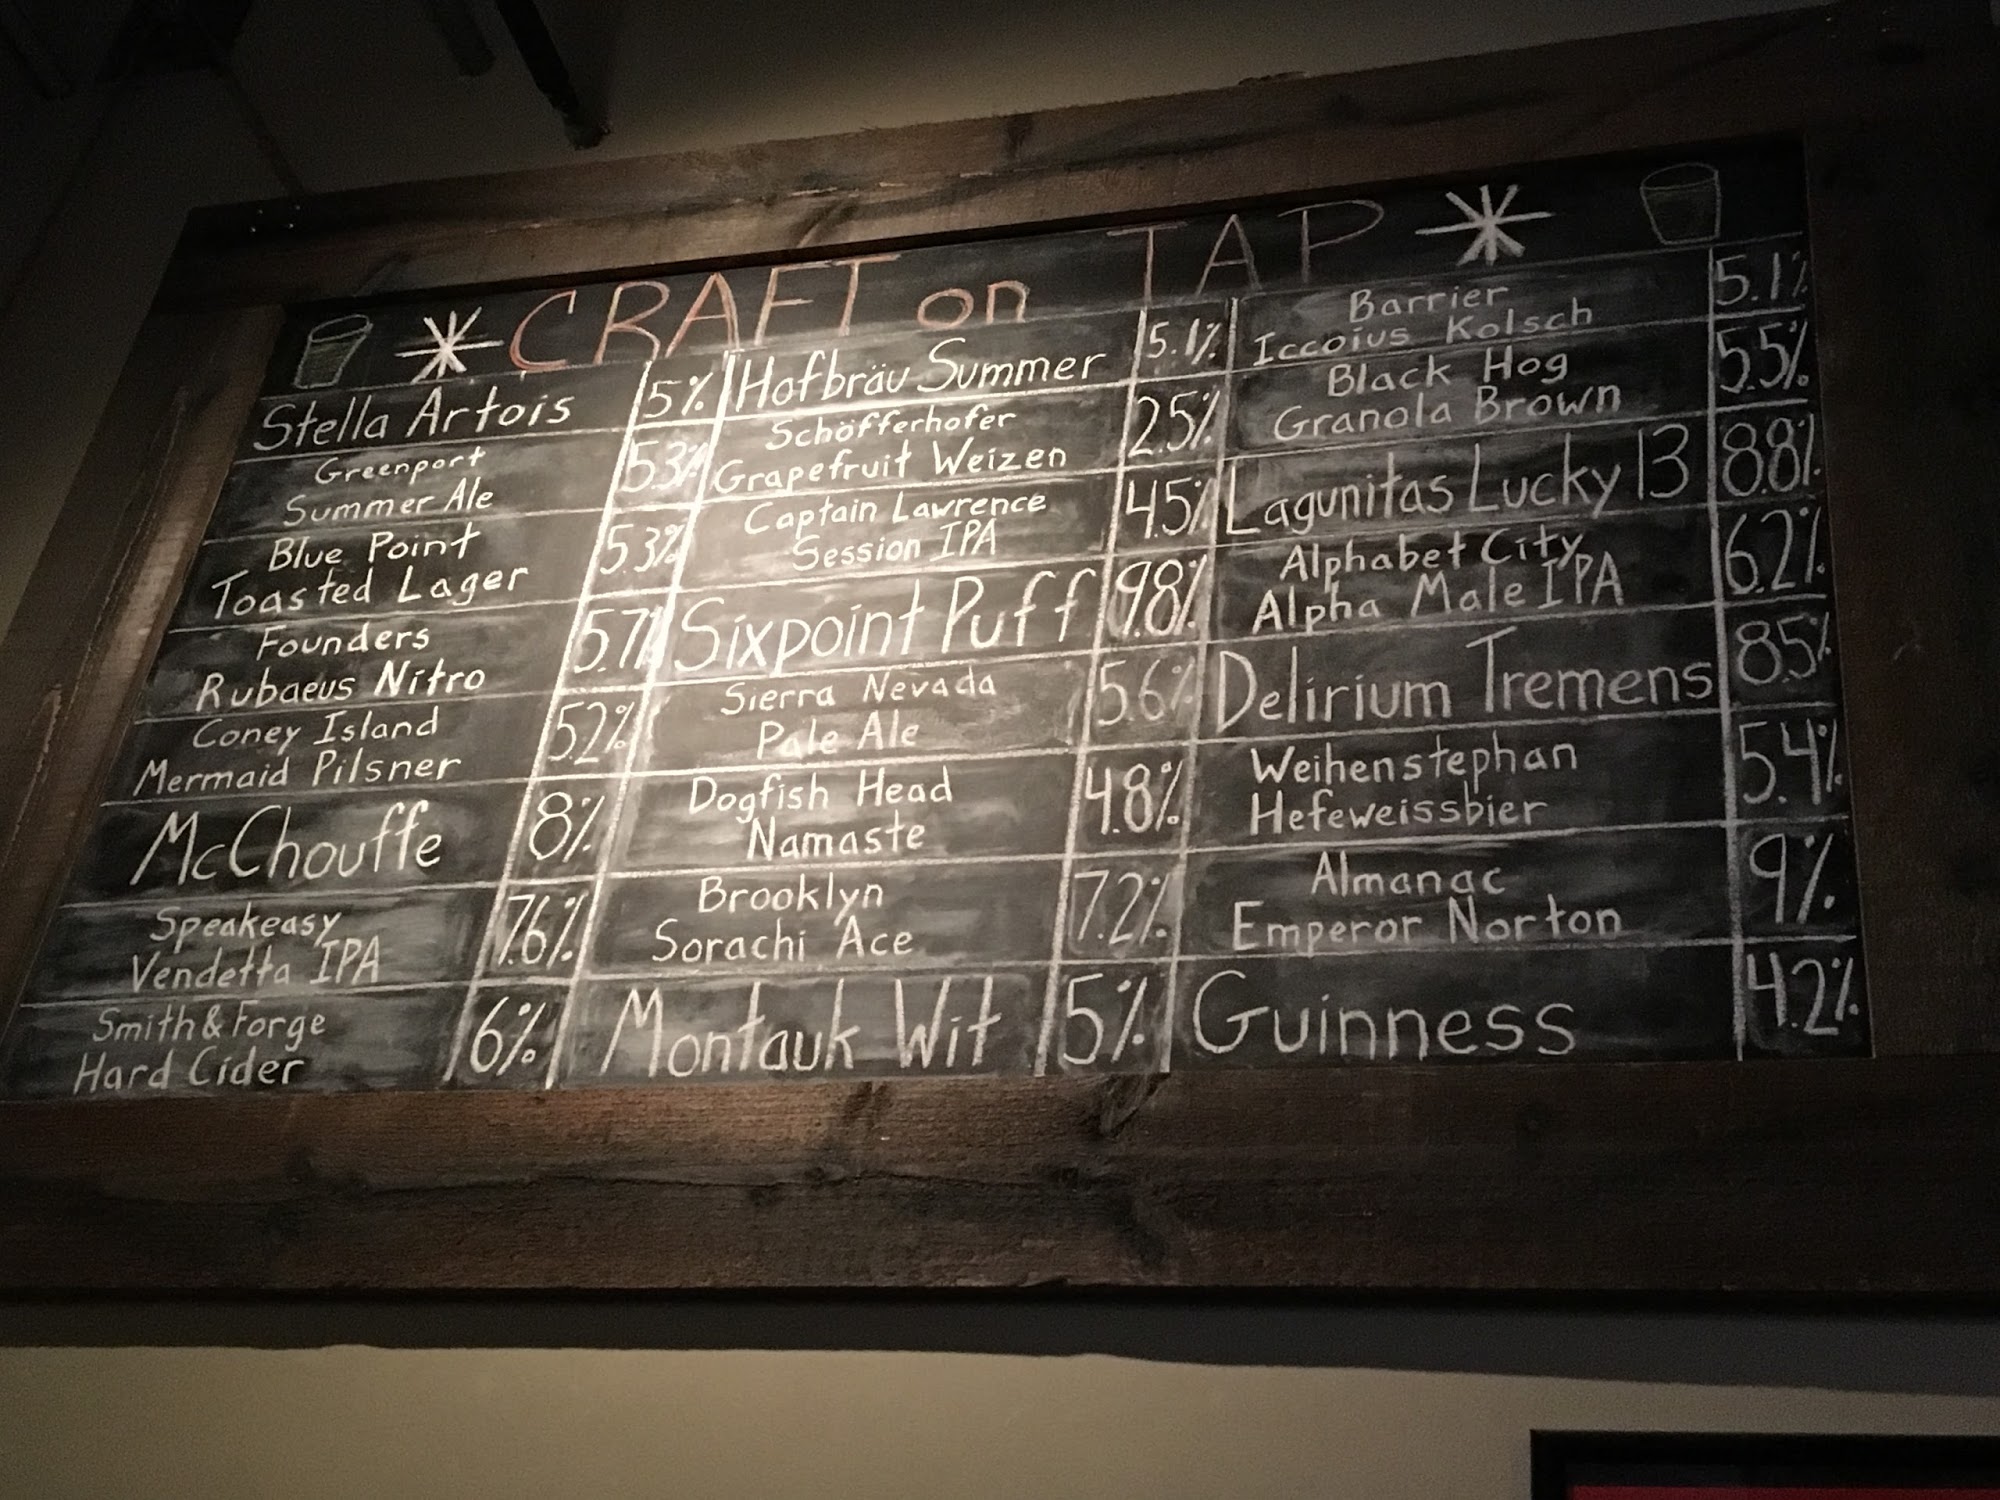 CRAFT on TAP
Stella Artois 5%
Greenport
Summer Ale 5.3%
Blue Point
Toasted Lager 5.3%
Founders
Rubaeus Nitro 5.7%
Coney Island
Mermaid Pilsner 5.2%
McChouffe 8%
Speakeasy
Vendetta IPA 7.6%
Smith & Forge
Hard Cider 6%
Hofbräu Summer 5.1%
Schöfferhofer
Grapefruit Weizen 2.5%
Captain Lawrence
Session IPA 4.5%
Sixpoint Puff 9.8%
Sierra Nevada
Pale Ale 5.6%
Dogfish Head
Namaste 4.8%
Brooklyn
Sorachi Ace 7.2%
Montauk Wit 5%
Barrier
Iccoius Kolsch 5.1%
Black Hog
Granola Brown 5.5%
Lagunitas Lucky 13 8.8%
Alphabet City
Alpha Male IPA 6.2%
Delirium Tremens 8.5%
Weihenstephan
Hefeweissbier 5.4%
Almanac
Emperor Norton 9%
Guinness 4.2%